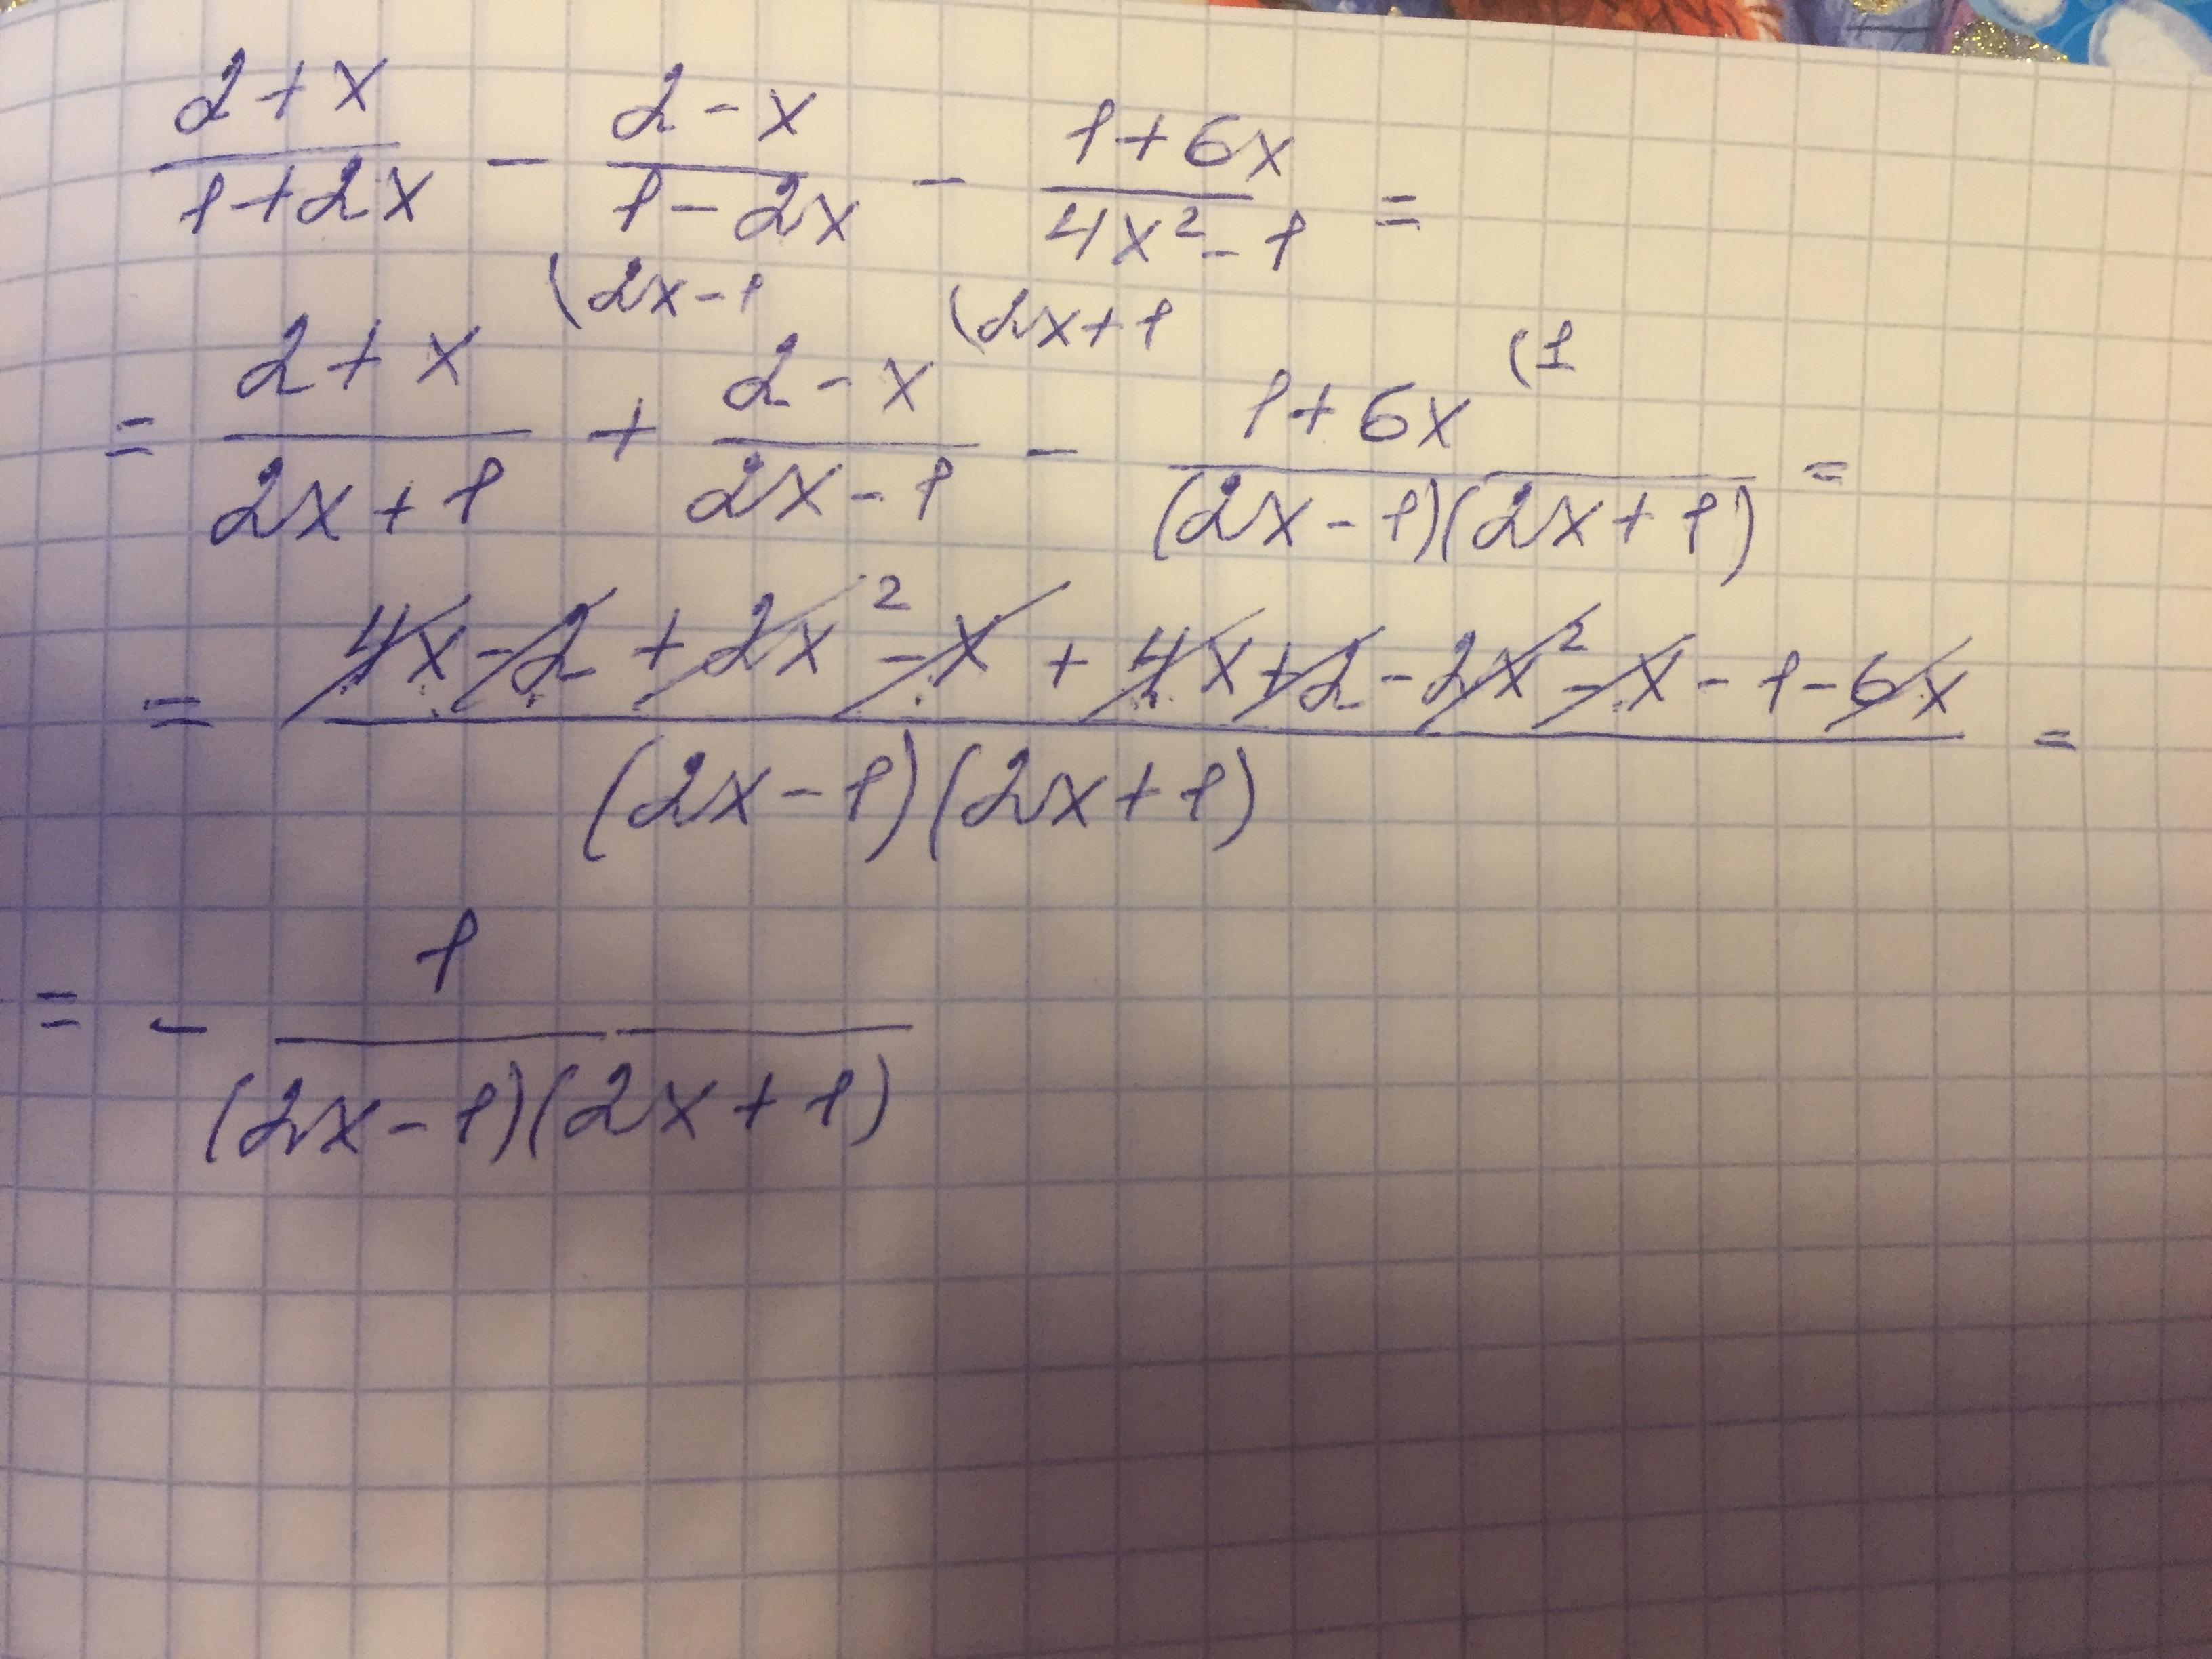 (2+x)/(1+2x) - (2-x)/(1-2x) - (1+6x)/(4x²-1) =
= (2+x)/(2x+1) (2x-1 + (2-x)/(2x-1) (2x+1 - (1+6x)/((2x-1)(2x+1)) (1 =
= (4x-2+2x²-x+4x+2-2x²-x-1-6x)/((2x-1)(2x+1)) =
= - 1/((2x-1)(2x+1))